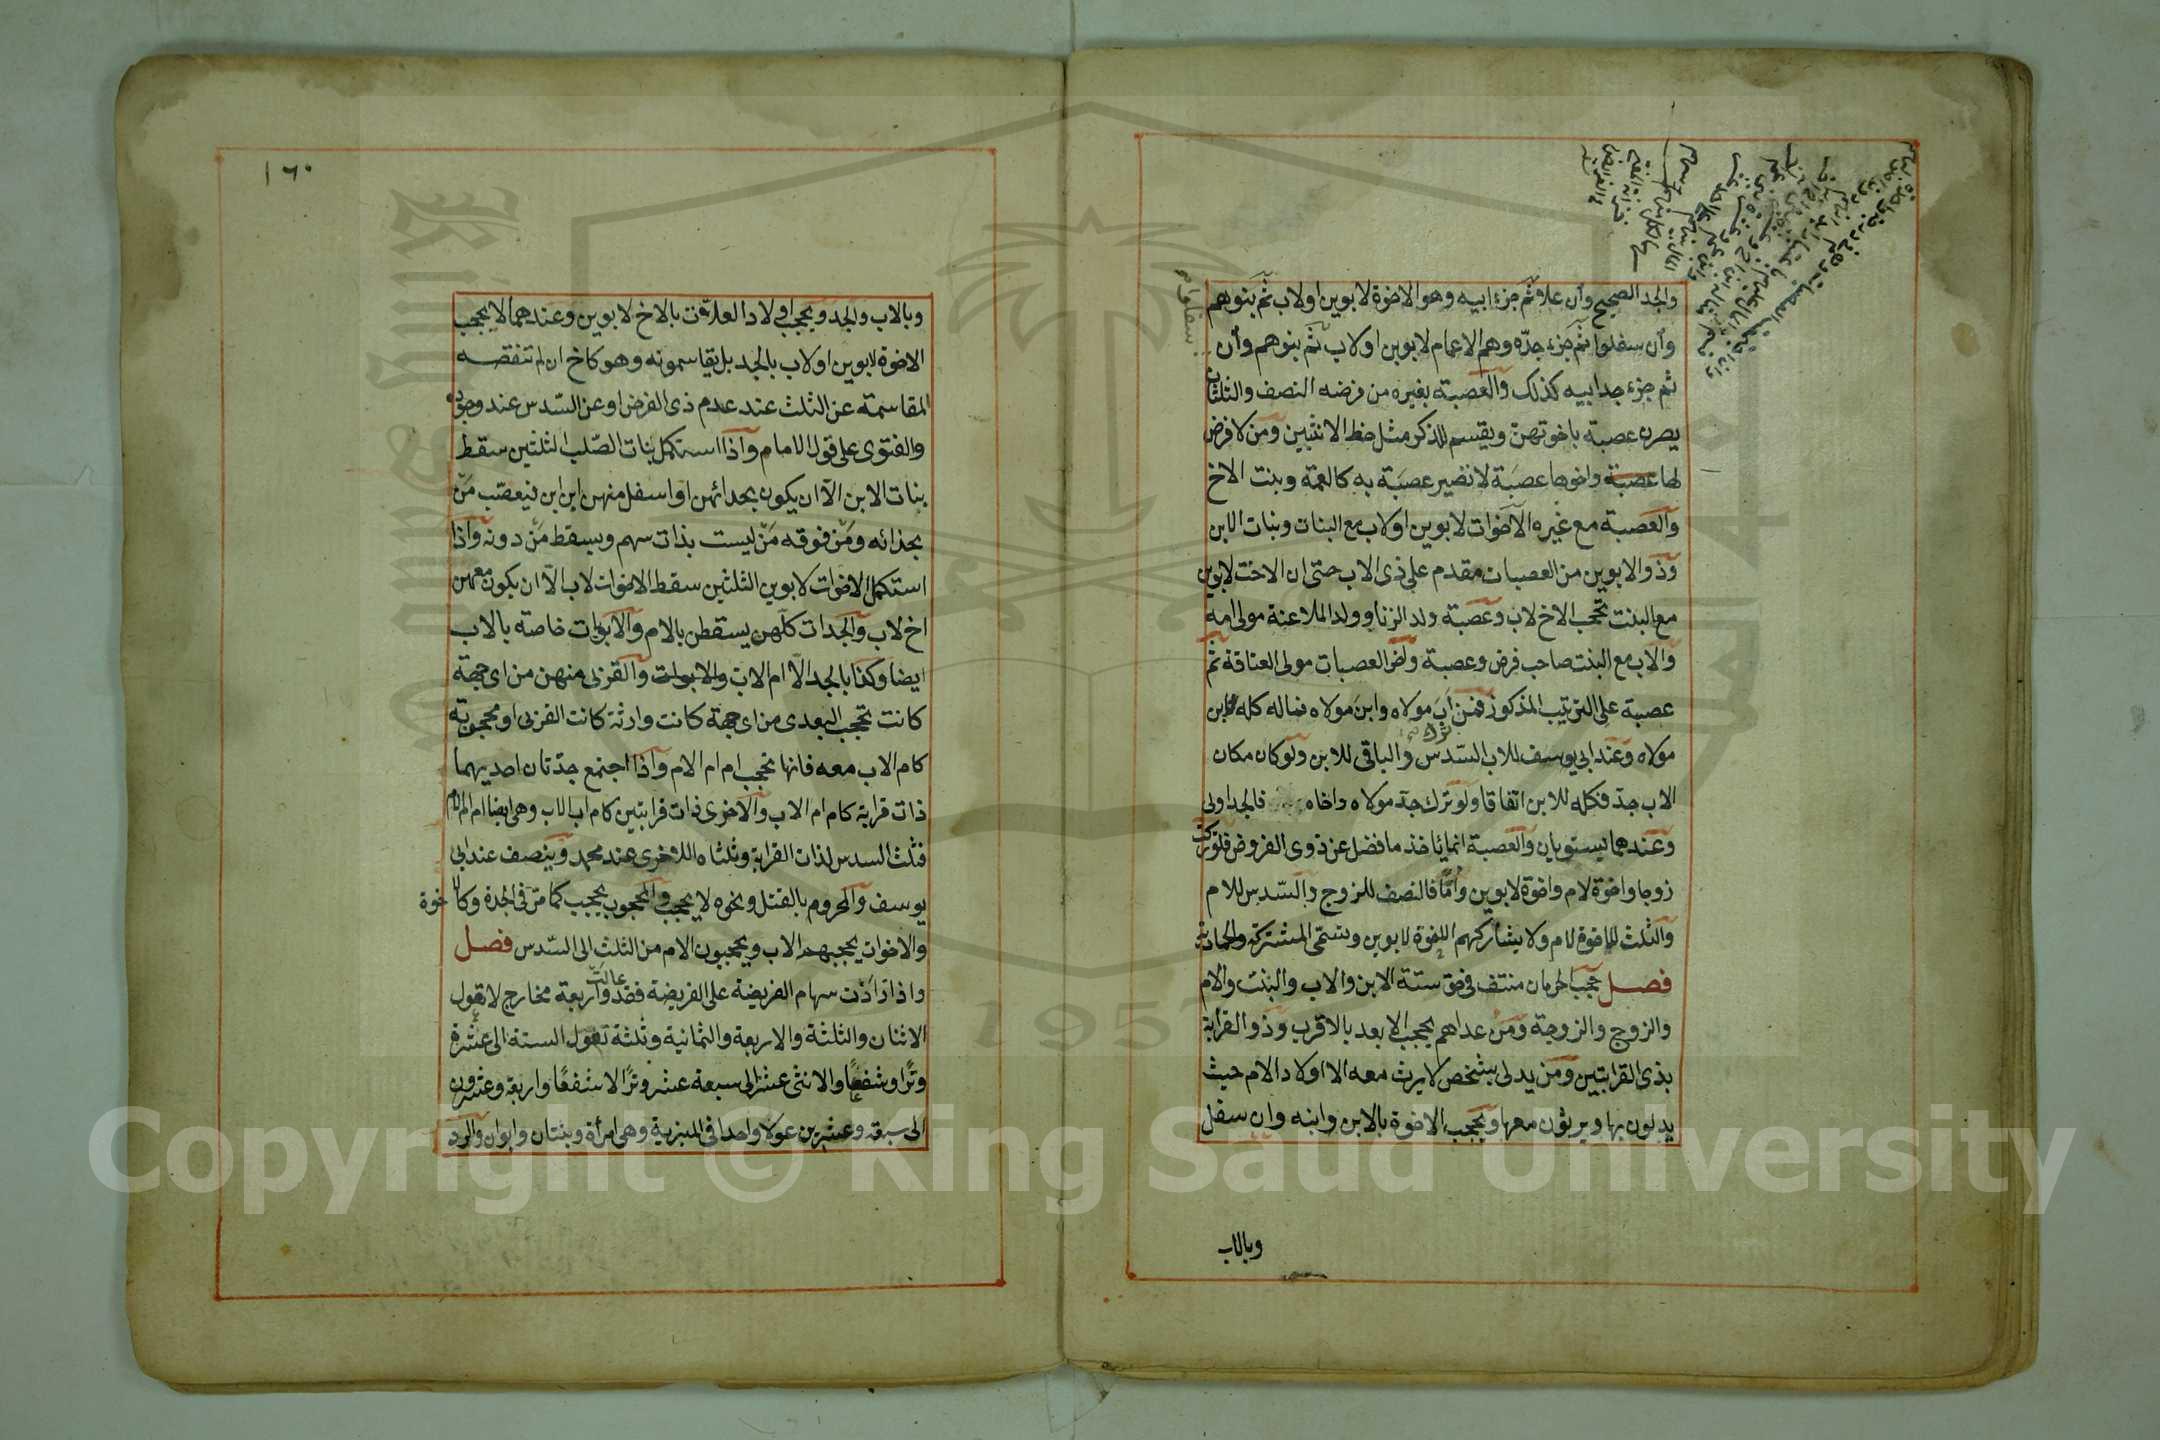 والجد الصحيح وأن علا ثم جزء ابيه وهو الاخوة لابوين او لاب ثم بنوهم
وأن سفلوا ثم جزء جدّه وهم الاعمام لابوين او لاب ثم بنوهم وأن
سفلوا
ثم جزء جد ابيه كذلك والعصبة بغيره من فرضه النصف والثلثان
يصرن عصبة باخوتهنّ ويقسم للذكر مثل حظ الانثيين ومن لا فرض
لها عصبة واخوها عصبة لا تصير عصبة به كالعمة وبنت الاخ
والعصبة مع غيره الاخوات لابوين او لاب مع البنات وبنات الابن
وذو الابوين من العصبات مقدم على ذى الاب حتى ان الاخت لابوين
مع البنت تحجب الاخ لاب وعصبة ولد الزنا وولد الملاعنة مولى امه
والاب مع البنت صاحب فرض وعصبة واخر العصبات مولى العتاقة ثم
عصبة على الترتيب المذكور فمن اب مولاه وابن مولاه فماله كله لابن
ترك
مولاه وعند ابى يوسف للاب السّدس والباقى للابن ولو كان مكان
الاب جدّ فكله للابن اتفاقا ولو ترك جدّ مولاه واخاه فالجد اولى
وعندهما يستويان والعصبة انما يأخذ ما فضل عن ذوى الفروض فلو تركت
زوجا واخوة لام واخوة لابوين وأمّا فالنصف للزوج والسّدس للام
والثلث للاخوة لام ولا يشاركهم الاخوة لابوين وتسمّى المشتركة والحمارية
فصل حجب الحرمان منتف فى حق ستة الابن والاب والبنت والام
والزوج والزوجة ومن عداهم يحجب الابعد بالاقرب وذو القرابة
بذى القرابتين ومن يدلى بشخص لا يرث معه الا اولاد الام حيث
يدلون بها ويرثون معها ويحجب الاخوة بالابن وابنه وان سفل
وبالاب
١٦٠
وبالاب والجد ويحجب اولاد العلات بالاخ لابوين وعندهما لا يحجب
الاخوة لابوين او لاب بالجد بل يقاسمونه وهو كاخ ان لم تنقصه
المقاسمة عن الثلث عند عدم ذى الفرض او عن السّدس عند وجوده
والفتوى على قول الامام واذا استكمل بنات الصّلب الثلثين سقط
بنات الابن الّا ان يكون بحذائهن او اسفل منهن ابن ابن فيعصّب مَن
بحذائه ومَن فوقه مَن ليست بذات سهم ويسقط مَن دونه واذا
استكمل الاخوات لابوين الثلثين سقط الاخوات لاب الّا ان يكون معهن
اخ لاب والجدات كلّهن يسقطن بالام والابويات خاصة بالاب
ايضا وكذا بالجد الّا ام الاب والابويات والقربى منهن من اى جهة
كانت تحجب البعدى من اى جهة كانت وارثة كانت القربى او محجوبة
كام الاب معه فانها تحجب ام ام الام واذا اجتمع جدّتان احديهما
ذات قرابة كام ام الاب والاخرى ذات قرابتين كام اب الاب وهى ايضا ام ام الام
فثلث السدس لذات القرابة وثلثاه للاخرى عند محمد وينصف عند ابى
يوسف والمحروم بالقتل ونحوه لا يحجب والمحجوب يحجب كما مرّ فى الجدة وكالاخوة
والاخوات يحجبهم الاب ويحجبون الام من الثلث الى السّدس فصل
واذا زادت سهام الفريضة على الفريضة فقد عالت واربعة مخارج لا تعول
الاثنان والثلثة والاربعة والثمانية وثلثة تعول الستة الى عشرة
وترًا وشفعًا والاثنى عشر الى سبعة عشر وترًا لا شفعًا واربعة وعشرون
الى سبعة وعشرين عولا واحدا فى المنبرية وهى امرأة وبنتان وابوان والرد
Copyright © King Saud University
1957